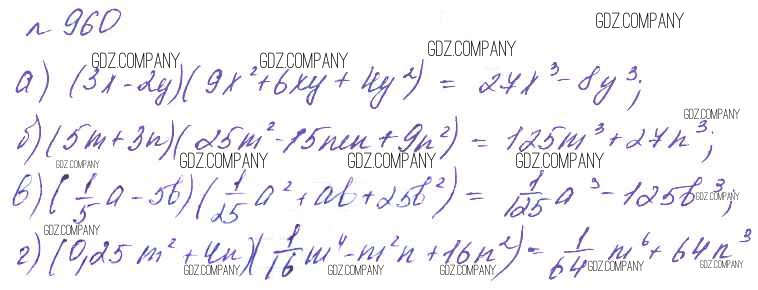 № 960
GDZ.COMPANY
GDZ.COMPANY GDZ.COMPANY GDZ.COMPANY
а) (3x - 2y)(9x² + 6xy + 4y²) = 27x³ - 8y³;
GDZ.COMPANY
б) (5m + 3n)(25m² - 15mn + 9n²) = 125m³ + 27n³;
GDZ.COMPANY GDZ.COMPANY GDZ.COMPANY GDZ.COMPANY
в) (1/5 a - 5b)(1/25 a² + ab + 25b²) = 1/125 a³ - 125b³;
GDZ.COMPANY
GDZ.COMPANY
г) (0,25m² + 4n)(1/16 m⁴ - m²n + 16n²) = 1/64 m⁶ + 64n³
GDZ.COMPANY GDZ.COMPANY GDZ.COMPANY GDZ.COMPANY GDZ.COMPANY